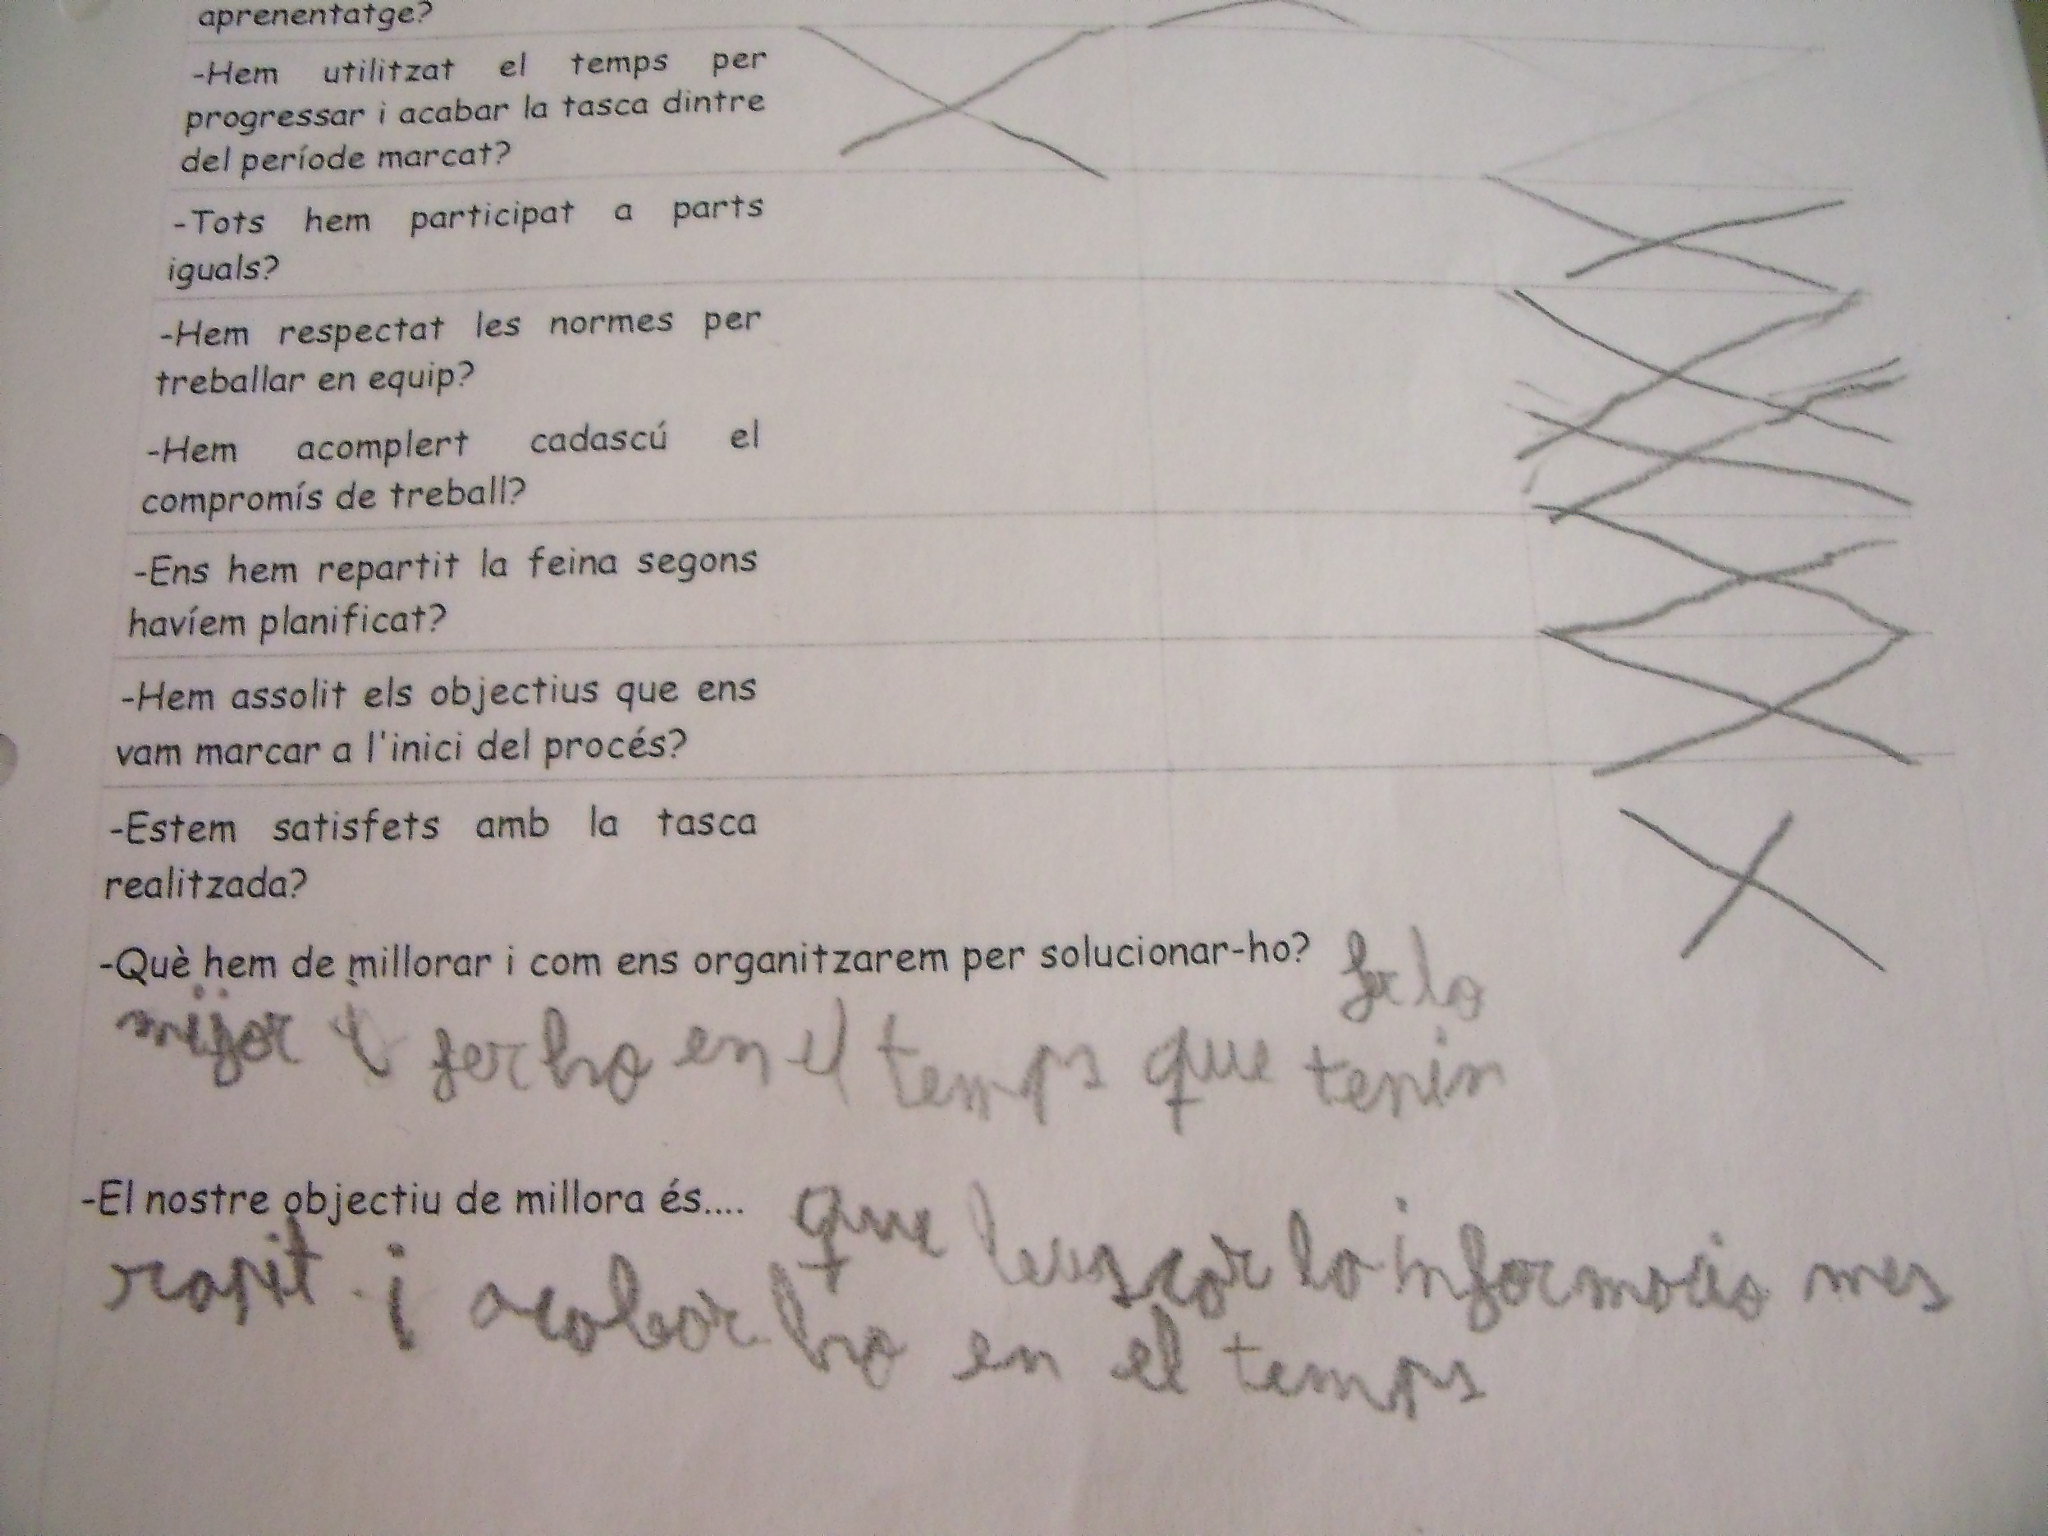 aprenentatge?
-Hem utilitzat el temps per
progressar i acabar la tasca dintre
del període marcat?
-Tots hem participat a parts
iguals?
-Hem respectat les normes per
treballar en equip?
-Hem acomplert cadascú el
compromís de treball?
-Ens hem repartit la feina segons
havíem planificat?
-Hem assolit els objectius que ens
vam marcar a l'inici del procés?
-Estem satisfets amb la tasca
realitzada?
-Què hem de millorar i com ens organitzarem per solucionar-ho? lo
mijor i fer ho en el temps que tenin
-El nostre objectiu de millora és.... que buscar la informacio mes
rapit i acabar ho en el temps